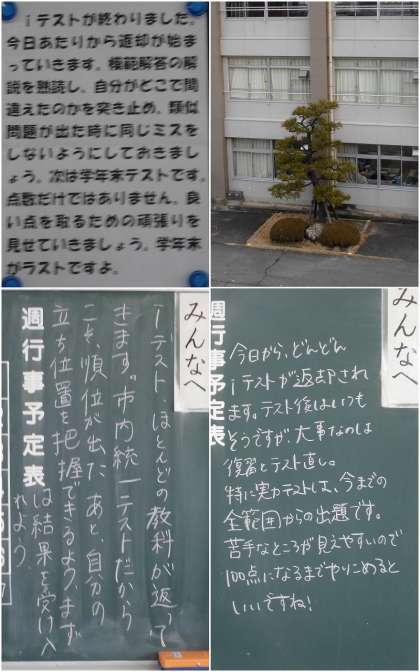 iテストが終わりました。
今日あたりから返却が始ま
っていきます。模範解答の解
説を熟読し、自分がどこで間
違えたのかを突き止め、類似
問題が出た時に同じミスを
しないようにしておきまし
ょう。次は学年末テストです。
点数だけではありません。良
い点を取るための頑張りを
見せていきましょう。学年末
がラストですよ。
みんなへ
iテスト、ほとんどの教科が返って
きます。市内統一テストだから
こそ、順位が出たあと、自分の
立ち位置を把握できるよう、まず
は結果を受け入
れよう。
週行事予定表
みんなへ
週行事予定表
今日から、どんどん
iテストが返却され
ます。テスト後はいつも
そうですが、大事なのは
復習とテスト直し。
特に実力テストは、今までの
全範囲からの出題です。
苦手なところが見えやすいので
100点になるまでやりこめると
いいですね!